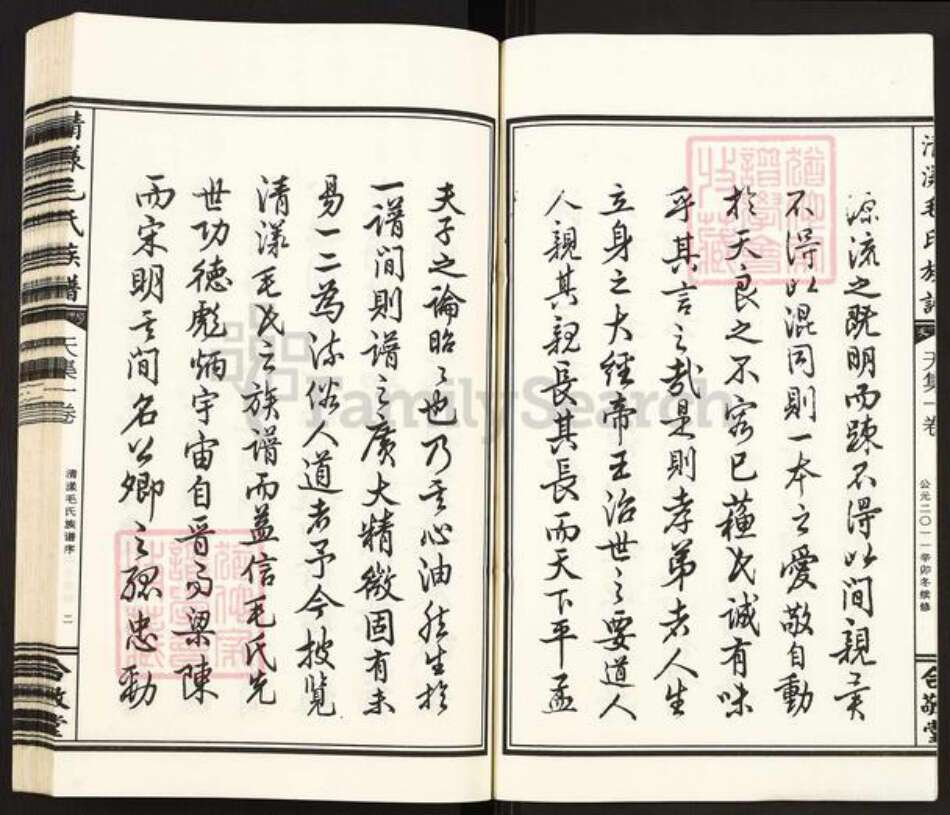 清漾毛氏族譜
天集一卷
公元二〇一一辛卯冬续修
合敬堂
源流之既明而踈不得以間親異
不得以混同則一本之愛敬自動
於天良之不容已蘓氏誠有味
乎其言之哉是則孝弟者人生
立身之大經帝王治世之要道人
人親其親長其長而天下平孟
夫子之論昭〻也乃其心油然生於
一譜間則譜之廣大精微固有未
易一二為流俗人道者予今披覽
清漾毛氏之族譜而益信毛氏先
世功德彪炳宇宙自晉而梁陳
而宋明其間名公卿之孤忠勁
清漾毛氏族譜
天集一卷
清漾毛氏族谱序
二
合敬堂
FamilySearch